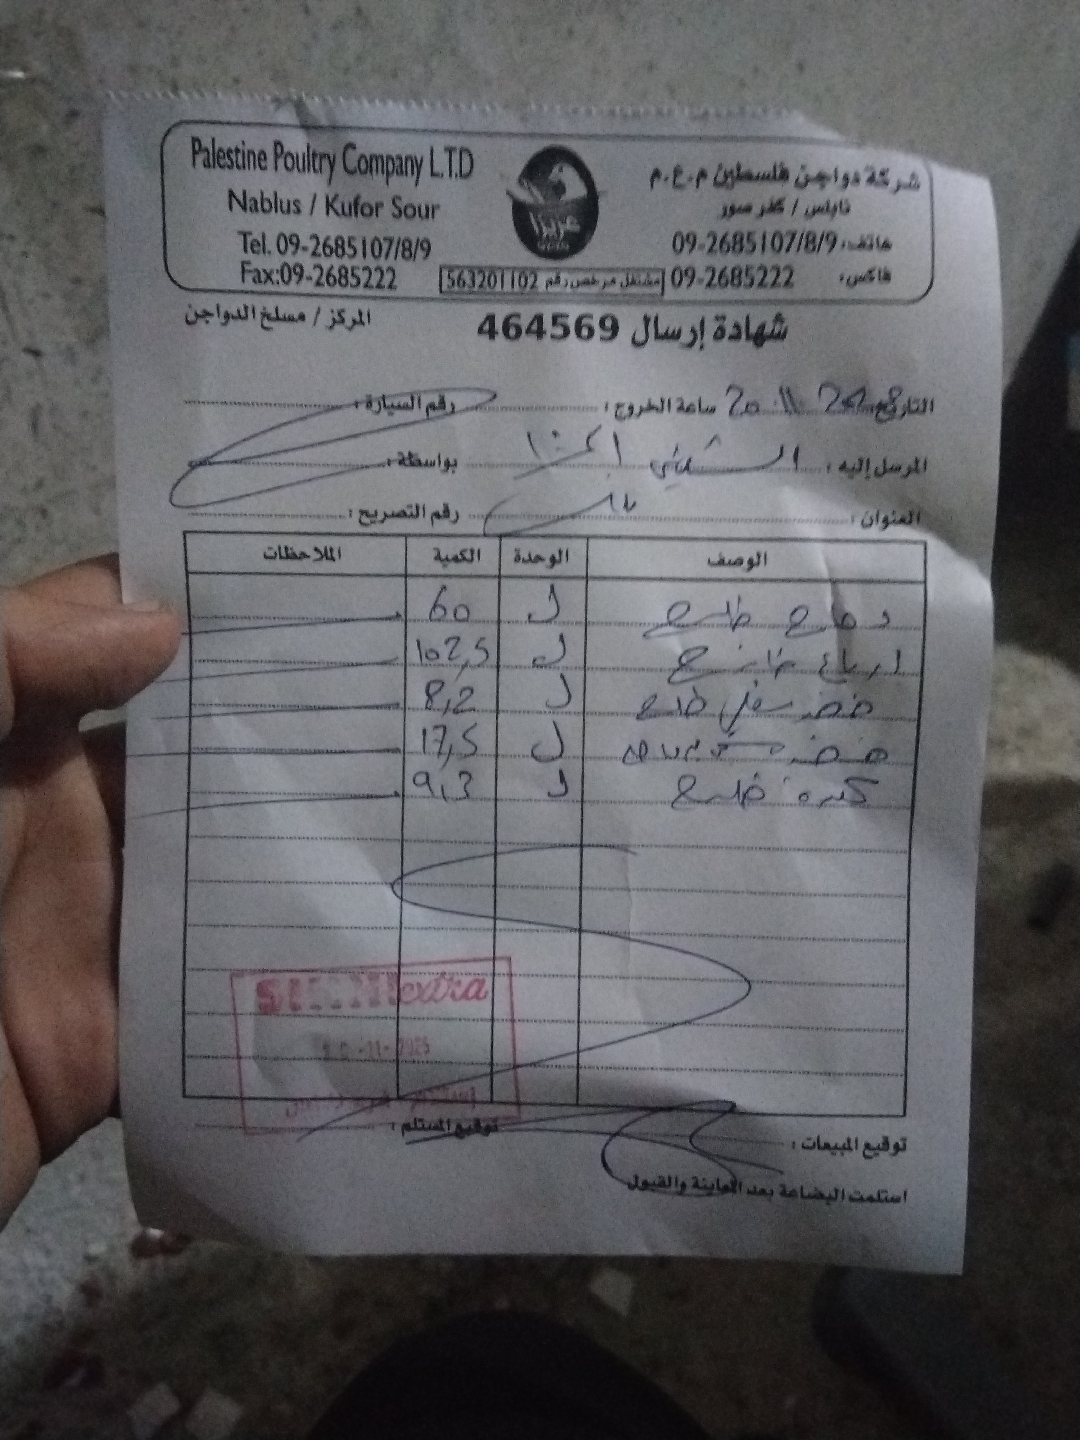 Palestine Poultry Company L.T.D
Nablus / Kufor Sour
Tel. 09-2685107/8/9
Fax:09-2685222
عزيزا
شركة دواجن فلسطين م.ع.م
نابلس / كفر صور
هاتف: 09-2685107/8/9
فاكس: 09-2685222
مشتغل مرخص رقم 563201102
شهادة إرسال 464569
المركز / مسلخ الدواجن
التاريخ: 20 11 ساعة الخروج: رقم السيارة:
المرسل إليه: الشيني اكسترا بواسطة:
العنوان: رقم التصريح:
الوصف الوحدة الكمية الملاحظات
دجاج طازج ك 60
ارباع طازج ك 102,5
طازج ك 8,2
ك 17,5
كبدة طازج ك 9,3
extra
-11-2025
توقيع المبيعات: توقيع المستلم:
استلمت البضاعة بعد المعاينة والقبول